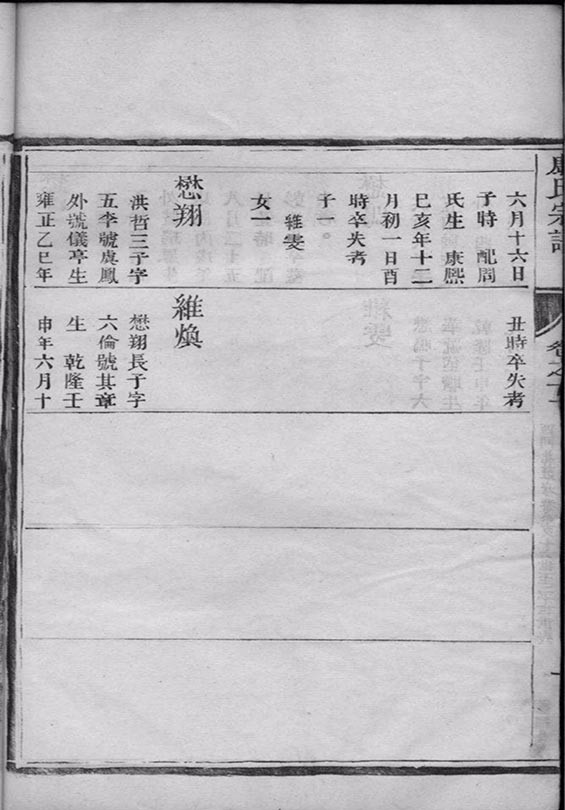 六月十六日
子時 配周
氏生 康熙
巳亥年十二
月初一日酉
時卒失考
子一。
維雯
女一
懋翔
洪哲三子字
五李號虞鳳
外號儀亭生
雍正乙巳年
丑時卒失考
維煥
懋翔長子字
六倫號其章
生 乾隆壬
申年六月十
氏宗譜